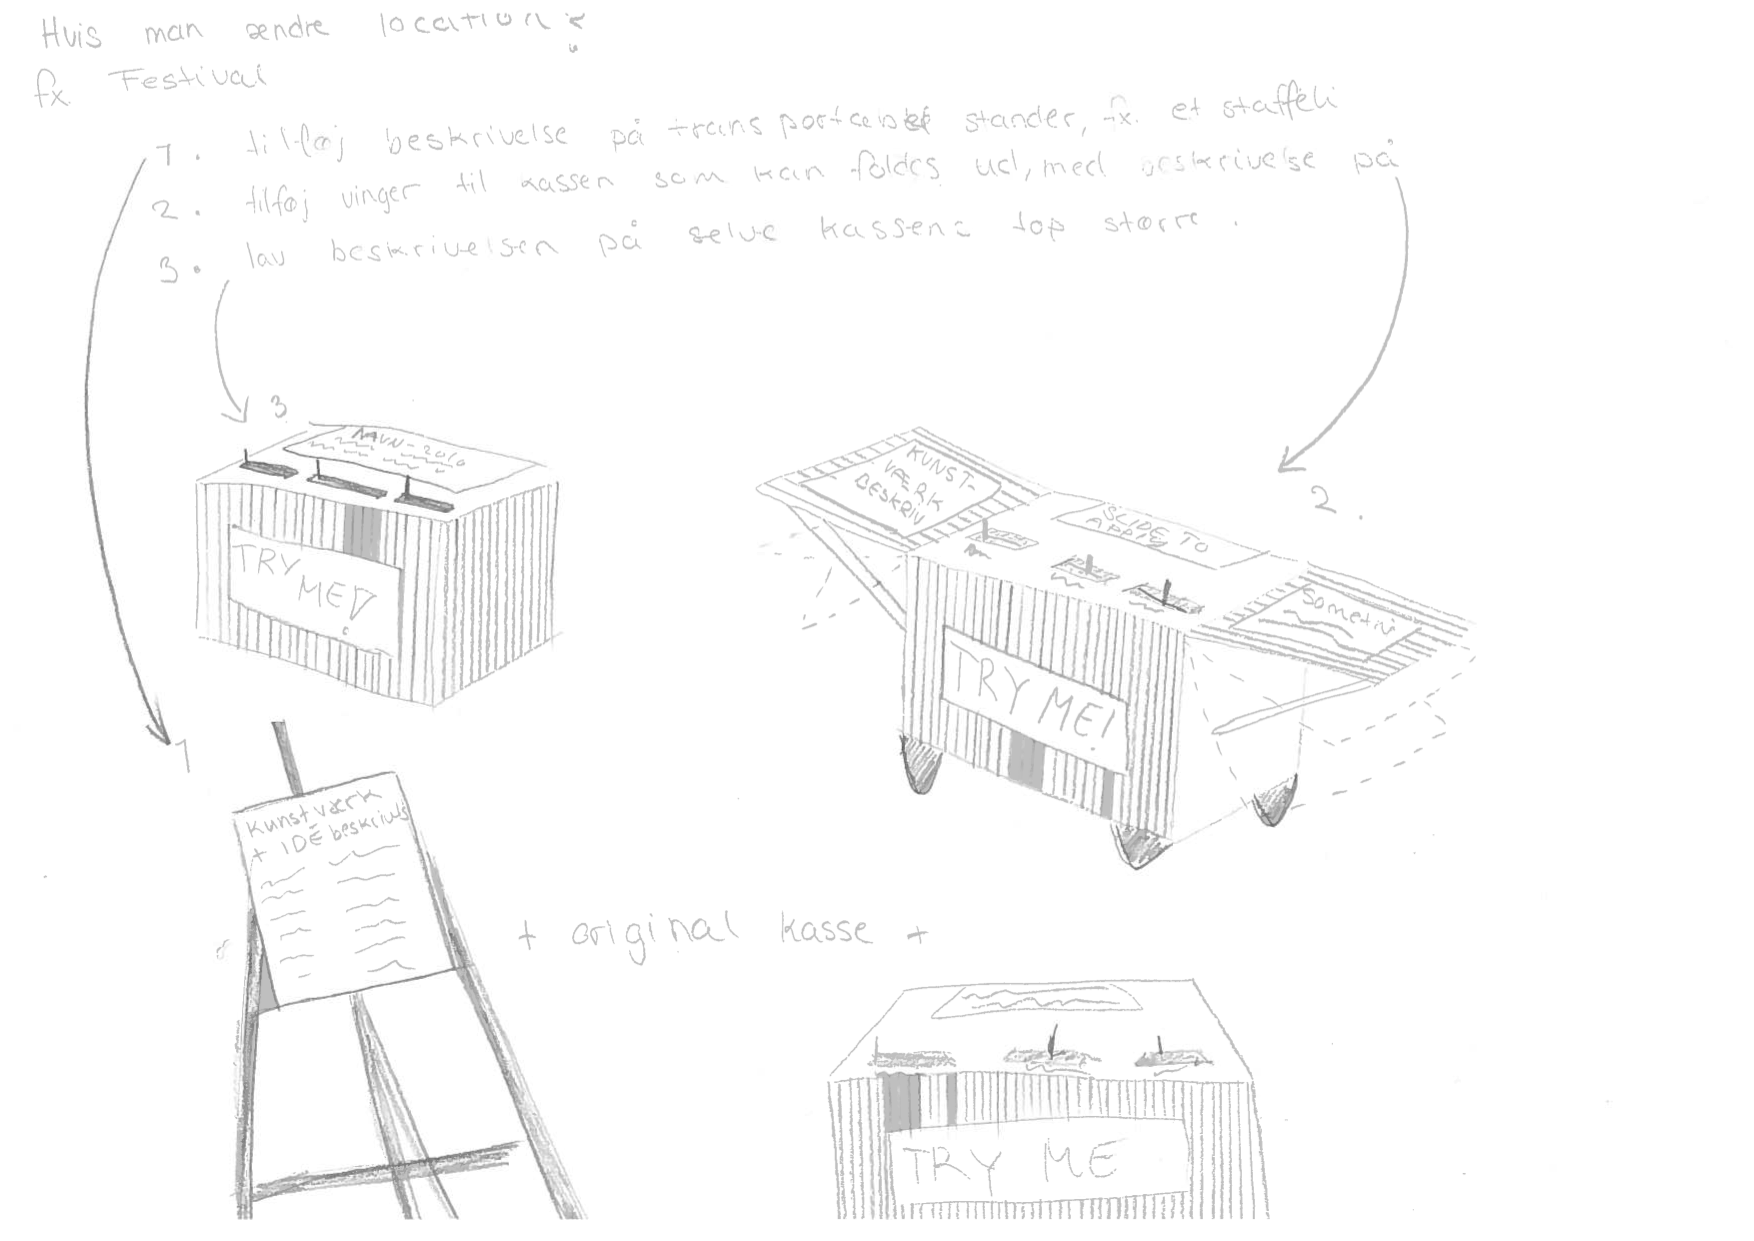 Hvis man ændre location?
fx Festival
1. tilføj beskrivelse på stander, fx. et staffeli
2. tilføj vinger til kassen som kan foldes ud, med beskrivelse på
3. lav beskrivelsen på selve kassens top større.
3
NAVN - 2010
TRY
ME!
2.
KUNST-
VÆRK
BESKRIV
SLIDE TO
TRY ME!
1
Kunstværk
+ IDÉ beskrivls
+ original kasse +
TRY ME